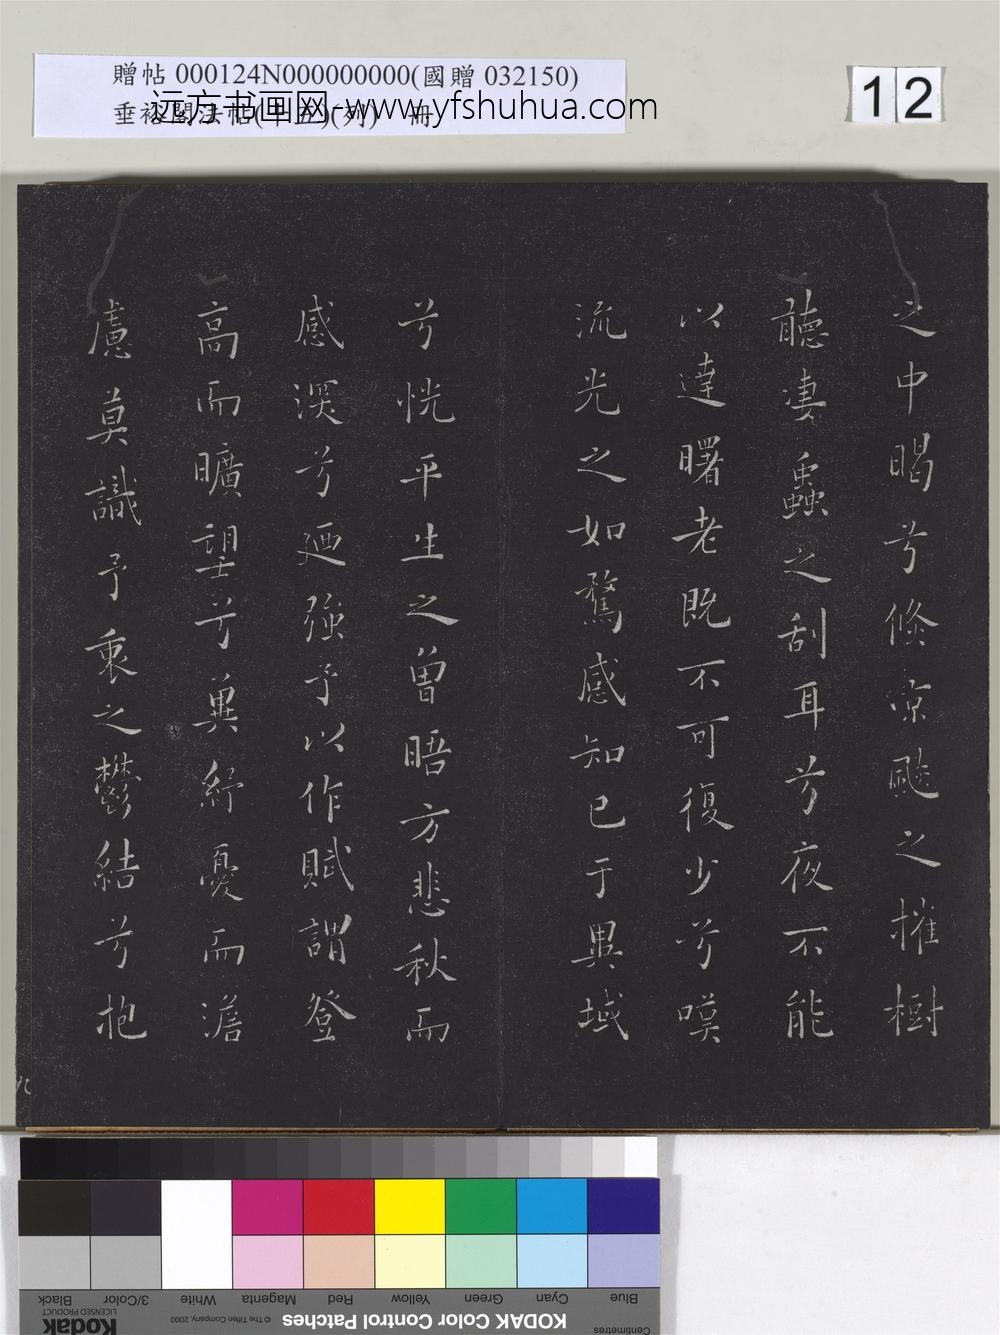 贈帖 000124N000000000(國贈 032150)
垂裕閣法帖(十五)(列) 冊
远方书画网-www.yfshuhua.com
12
之中暍兮倏凉颷之摧樹
聽凄蟲之刮耳兮夜不能
以達曙老既不可復少兮嘆
流光之如騖感知已于異域
兮恍平生之曾晤方悲秋而
感深兮廼强予以作賦謂登
高而曠望兮冀紓憂而澹
慮莫識予衷之鬱結兮抱
九
Blue Cyan Green Yellow Red Magenta White 3/Color Black
Centimetres KODAK Color Control Patches © The Tiffen Company, 2000 Kodak LICENSED PRODUCT